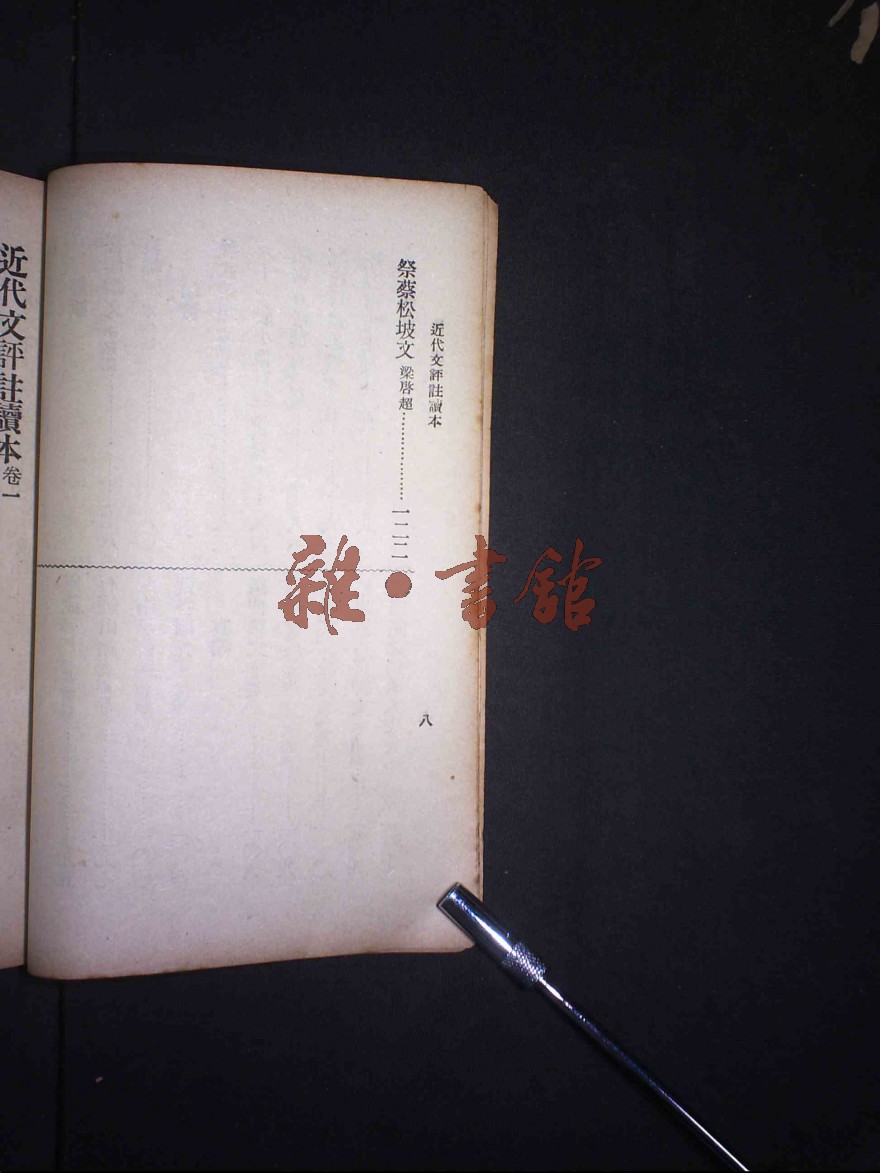 近代文評註讀本
祭蔡松坡文 梁啓超………………一二二
八
近代文評註讀本 卷一
雜・書館